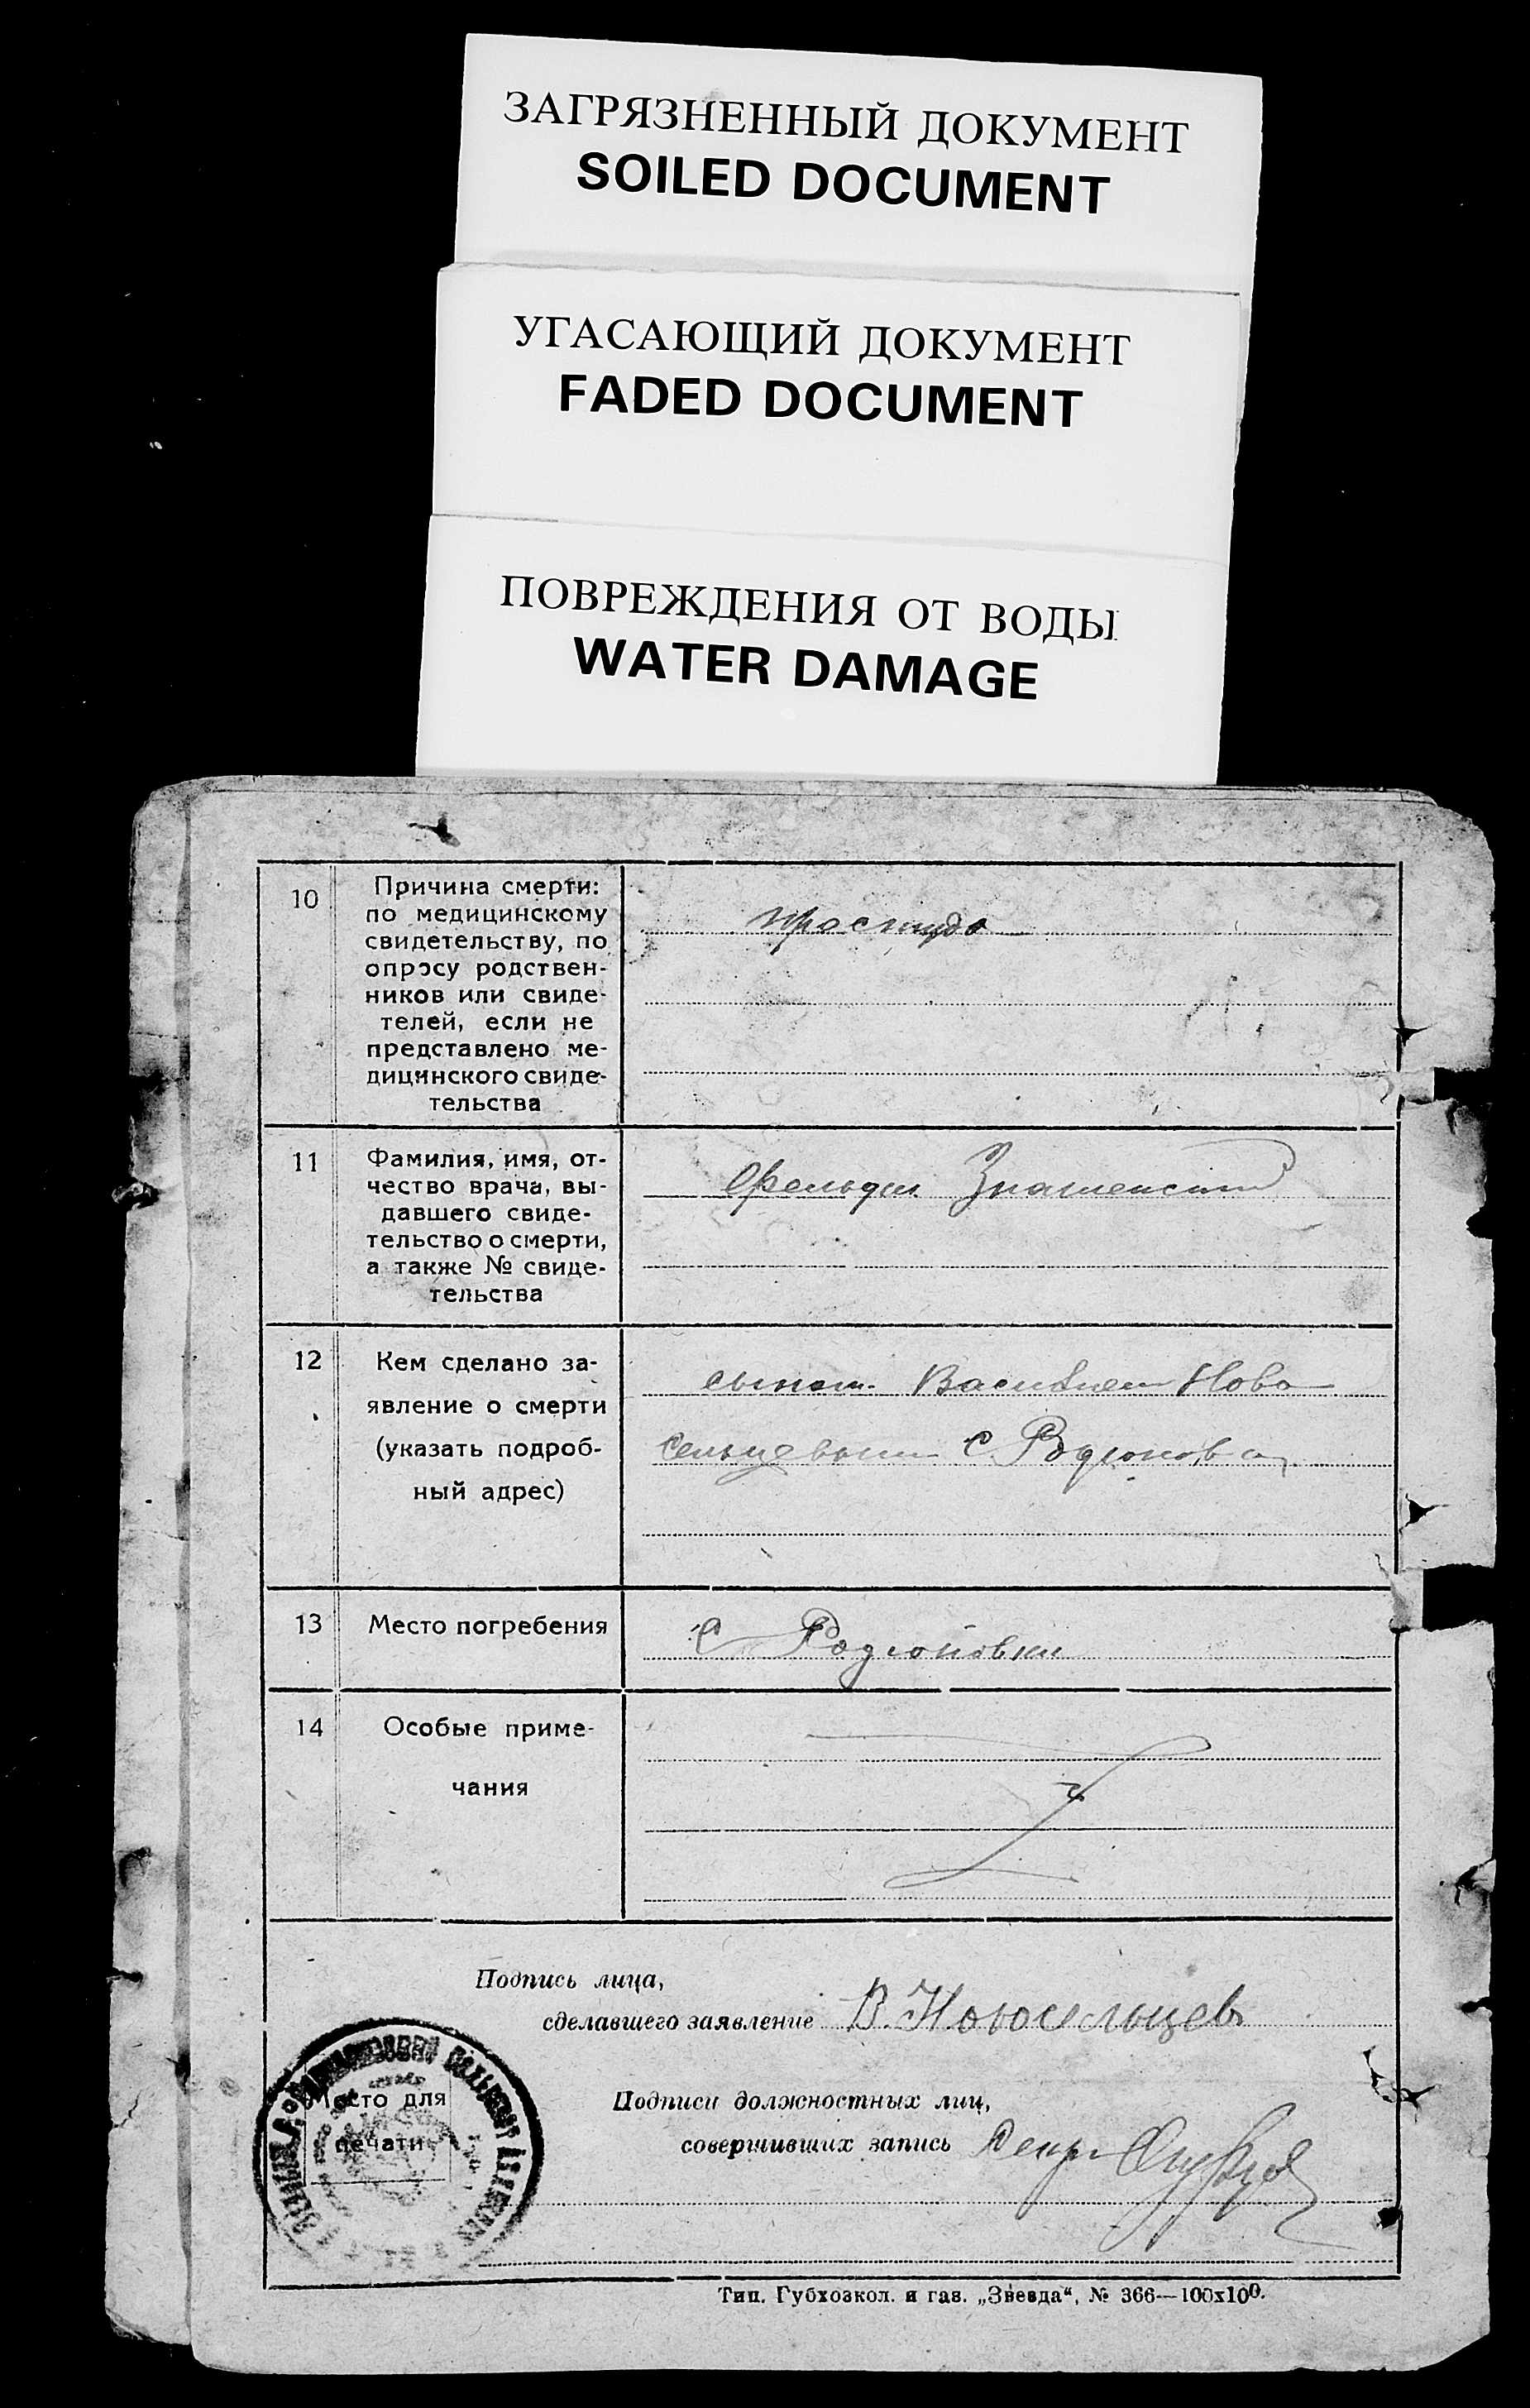 ЗАГРЯЗНЕННЫЙ ДОКУМЕНТ
SOILED DOCUMENT
УГАСАЮЩИЙ ДОКУМЕНТ
FADED DOCUMENT
ПОВРЕЖДЕНИЯ ОТ ВОДЫ
WATER DAMAGE
10
Причина смерти:
по медицинскому
свидетельству, по
опросу родствен-
ников или свиде-
телей, если не
представлено ме-
дицинского свиде-
тельства
простуда
11
Фамилия, имя, от-
чество врача, вы-
давшего свиде-
тельство о смерти,
а также № свиде-
тельства
Фельдш. Знаменский
12
Кем сделано за-
явление о смерти
(указать подроб-
ный адрес)
сыном. Василием Ново
сельцевым с Родионовка
13
Место погребения
С Родионовки
14
Особые приме-
чания
Подпись лица,
сделавшего заявление В. Новосельцев
Место для
печати
Подписи должностных лиц,
совершивших запись Секр
Тип. Губхозкол. и газ. „Звезда“, № 366—100х100.